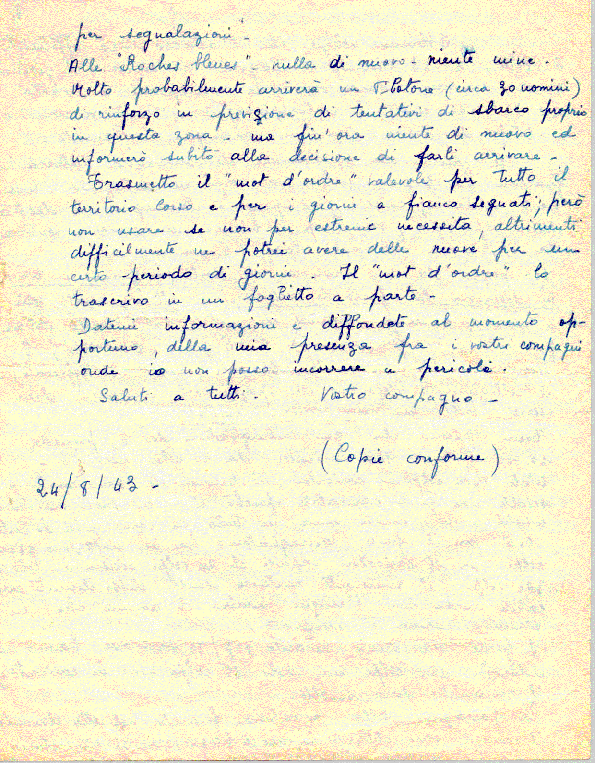 per segnalazioni".
Alle "Roches bleues" - nulla di nuovo - niente mine.
Molto probabilmente arriverà un Plotone (circa 30 uomini)
di rinforzo in previzione di tentativi di sbarco proprio
in questa zona - ma fin'ora niente di nuovo ed
informerò subito alla decisione di farli arrivare -
Trasmetto il "mot d'ordre" valevole per tutto il
territorio Corso e per i giorni a fianco segnati; però
non usare se non per estreme necessita, altrimenti
difficilmente ne potrei avere delle nuove per un
certo periodo di giorni. Il "mot d'ordre" lo
trascrivo in un foglietto a parte -
Datemi informazioni e diffondete al momento op-
portuno, della mia presenza fra i vostri compagni
onde io non possa incorrere a pericoli.
Saluti a tutti - Vostro compagno -
(Copie conforme)
24/8/43 -